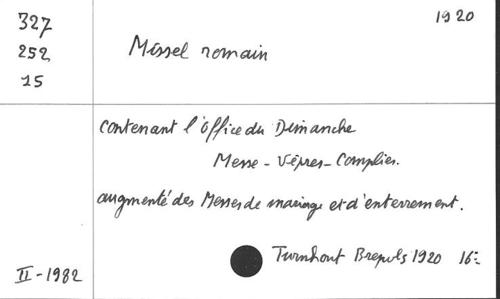 1920
327
252
15
Missel romain
contenant l'Office du Dimanche
Messe - Vêpres - Complies.
augmenté des Messes de mariage et d'enterrement.
Turnhout Brepols 1920 16º
II - 1982